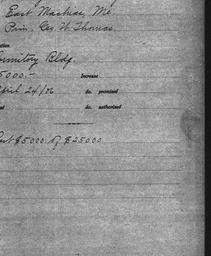 East Machias, Me.
Prin. Geo. W. Thomas.
Dormitory Bldg.
5000.- Increase
April 24/06 do. promised
do. authorized
Last $5000. of $25000